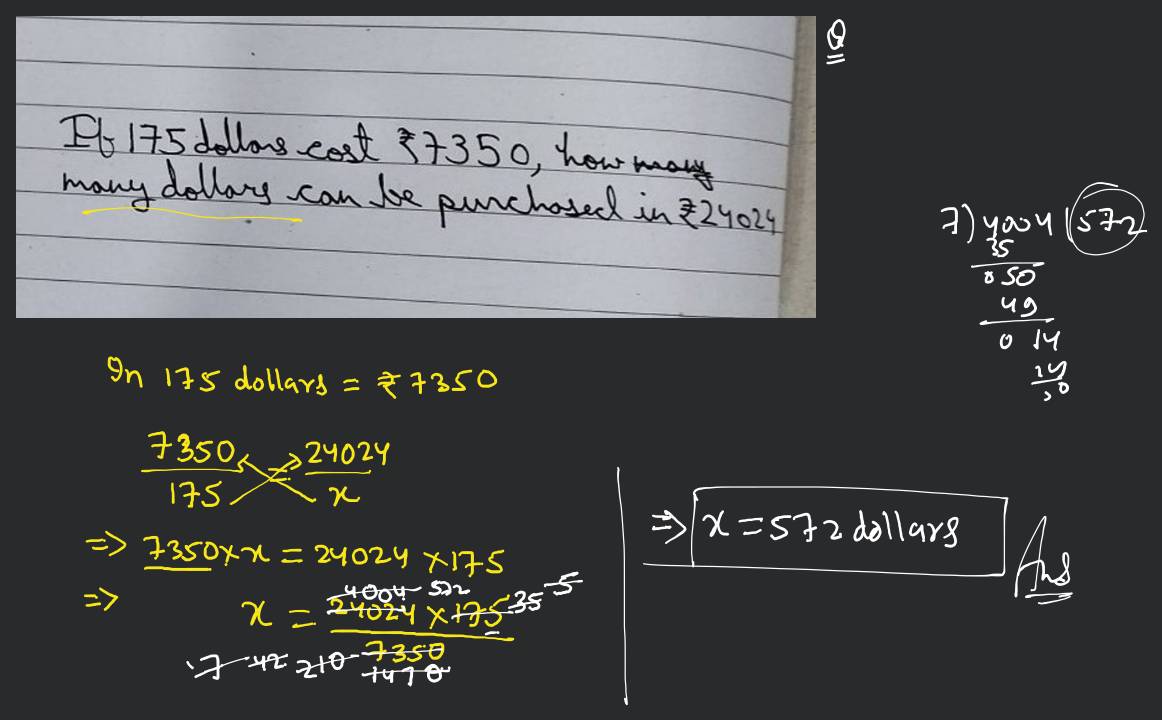 Q
If 175 dollars cost ₹7350, how many
many dollars can be purchased in ₹24024
7)4004(572
35
050
49
0 14
14
>0
In 175 dollars = ₹7350
7350/175 = 24024/x
=> 7350×x = 24024 ×175
=> x = 24024 ×175/7350
4004 572 35 5
7 42 210 1470
=> x = 572 dollars
Ans